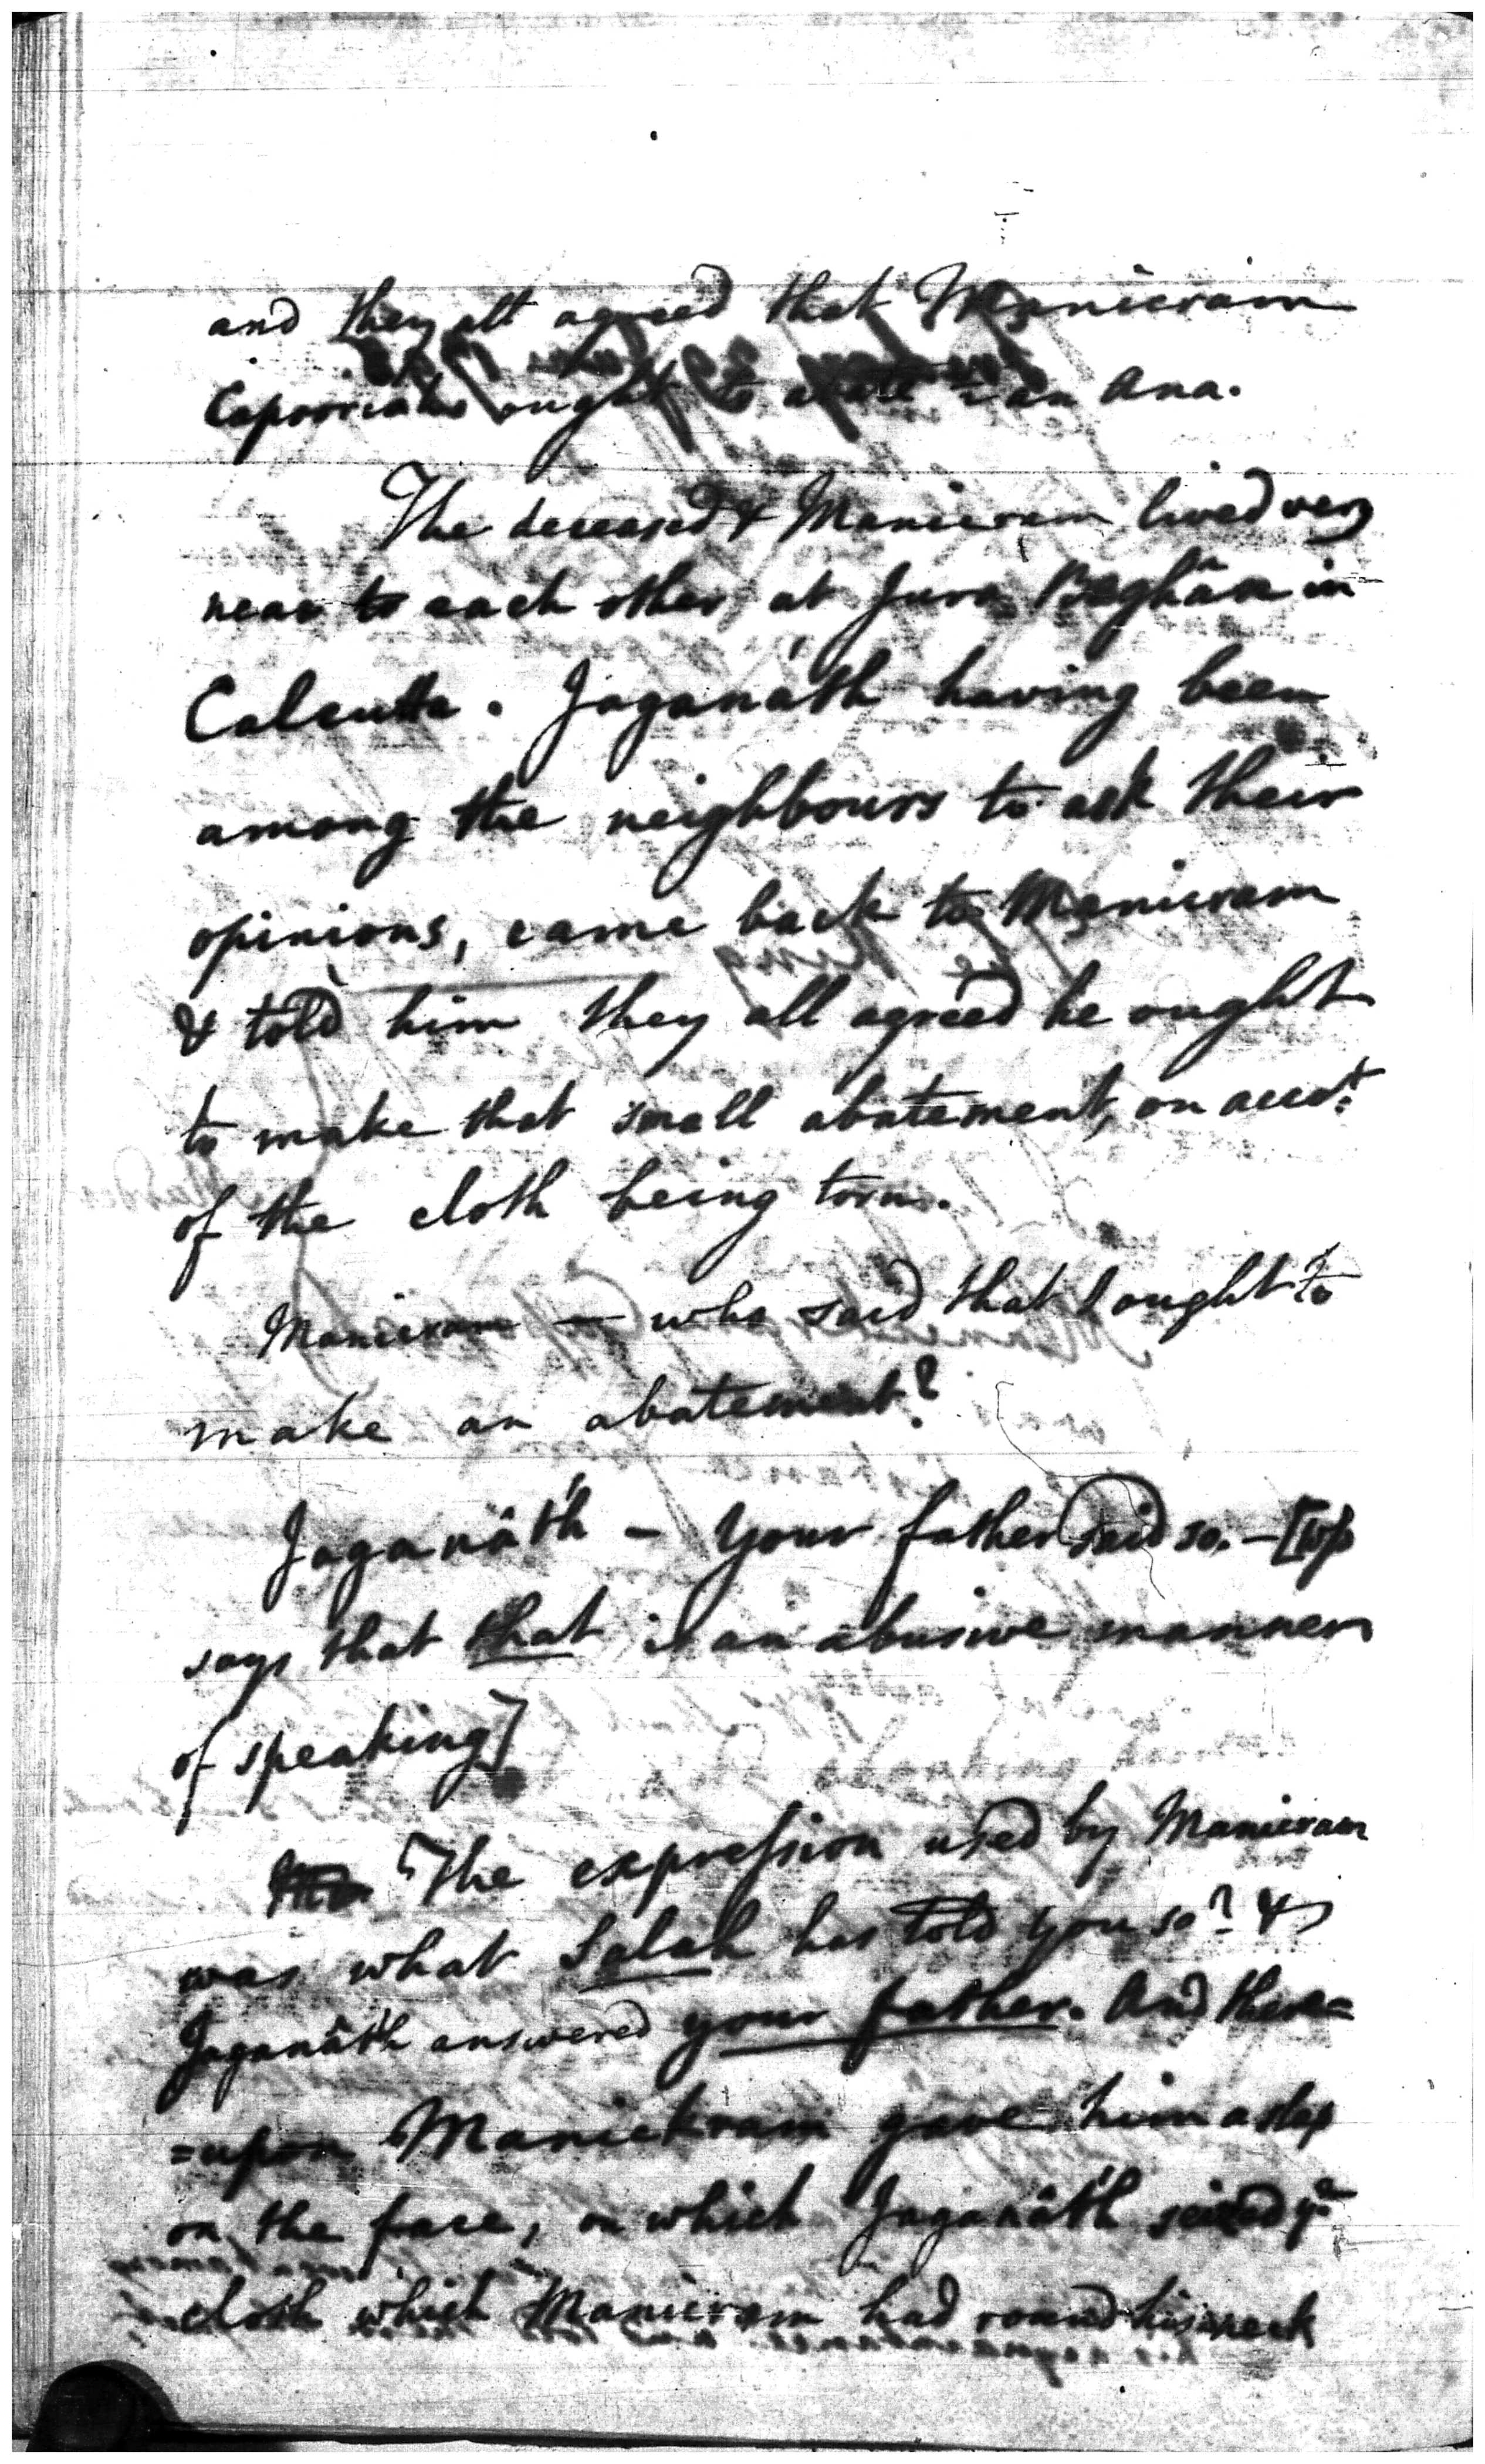 and they all agreed that Manicram
ought to abate an Ana.
The deceased & Manicram lived very
near to each other, at Jura Baghân in
Calcutta. Jaganáth having been
among the neighbours to ask their
opinions, came back to Manicram
& told him they all agreed he ought
to make that small abatement, on accot.
of the cloth being torn.
Manicram — who said that I ought to
make an abatement?
Jaganâth — Your father said so. — [Wss
says that that is an abusive manner
of speaking]
[The expression used by Manicram
was what Salah has told you so? &
Jaganâth answered your father. And there=
=upon Manickram gave him a slap
on the face, on which Jaganâth seized ye
cloth which Manicram had round his neck